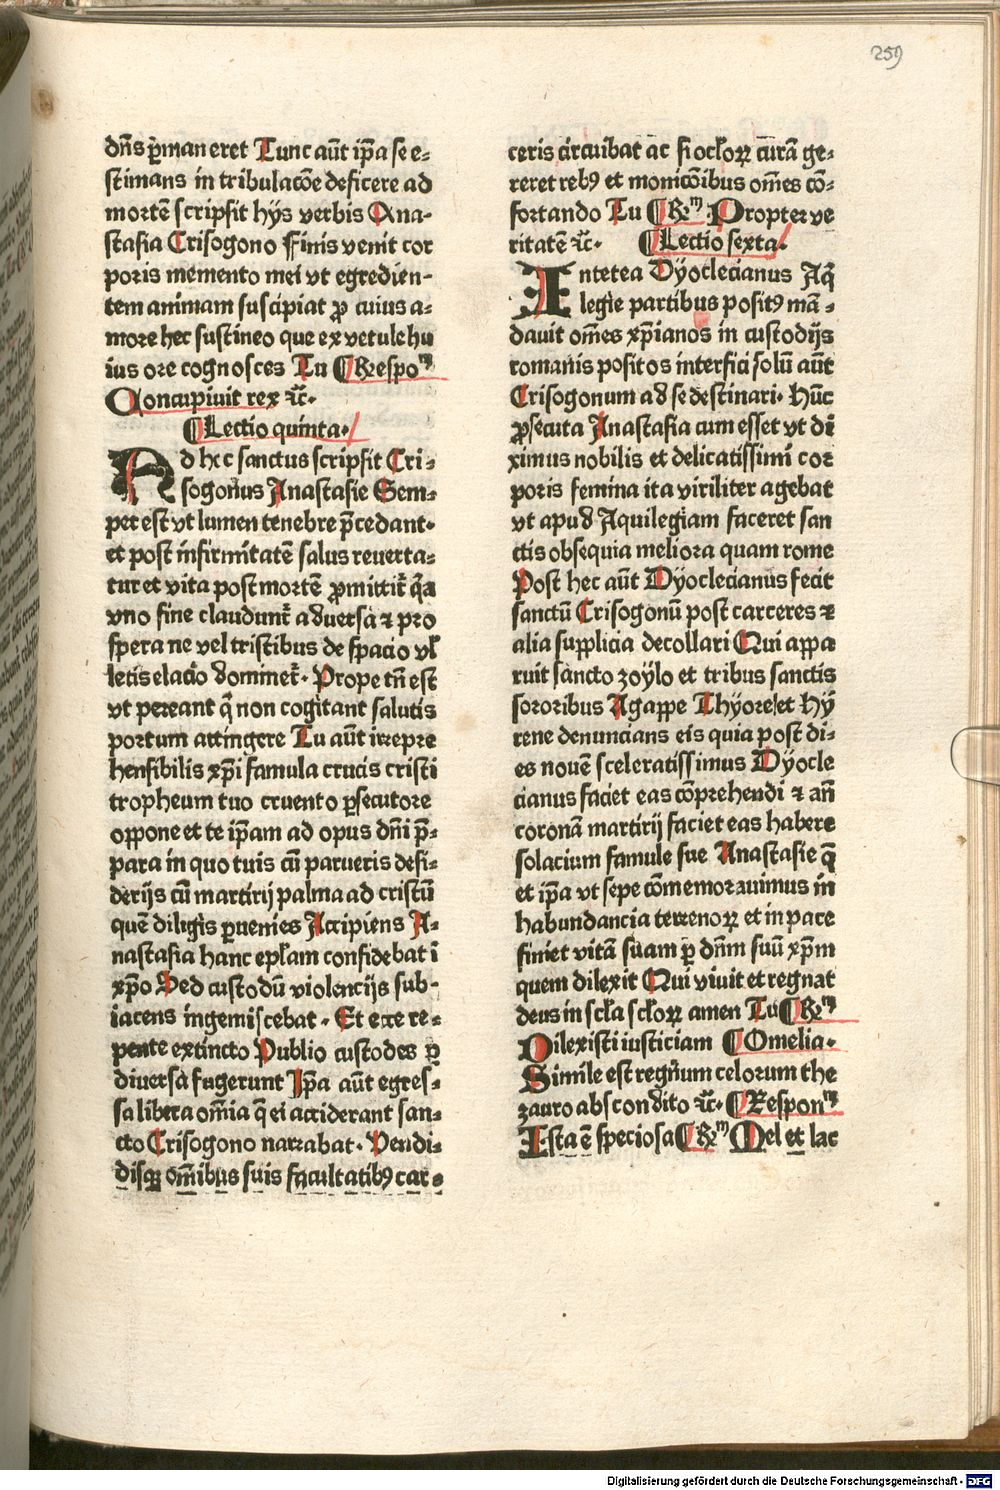 259
dn̄s p̄maneret Tunc aūt ip̄a se e⸗
stimans in tribulacōe deficere ad
mortē scripsit hijs verbis Ana⸗
stasia Crisogono Finis venit cor
poris memento mei vt egredien⸗
tem animam suscipiat ꝓ cuius a⸗
more hec sustineo que ex vetule hu
ius ore cognosces Tu ¶Respoᵐ
Concupiuit rex ⁊c̄.
¶Lectio quinta.
AD hec sanctus scripsit Cri⸗
sogonus Anastasie Sem⸗
per est vt lumen tenebre p̄cedant.
et post infirmitatē salus reuerta⸗
tur et vita post mortē ꝓmittit̄ q̄a
vno fine claudunt̄ aduersa ⁊ pro
spera ne vel tristibus despacio vl̓
letis elacio dominet̄. Prope tn̄ est
vt pereant q̄ non cogitant salutis
portum attingere Tu aūt irrepre
hensibilis xp̄i famula crucis cristi
tropheum tuo cruento ꝑsecutore
oppone et te ip̄am ad opus dn̄i p̄⸗
para in quo tuis cū parueris desi⸗
derijs cū martirij palma ad cristū
quē diligis ꝑuenies Accipiens A⸗
nastasia hanc ep̄lam confidebat ī
xp̄o Sed custodū violencijs sub⸗
iacens ingemiscebat. Et ecce re⸗
pente extincto Publio custodes ꝑ
diuersa fugerunt Ip̄a aūt egres⸗
sa libera om̄ia q̄ ei acciderant san⸗
cto Crisogono narrabat. Vendi⸗
disqꝫ om̄ibus suis facultatibꝰ car⸗
ceris circuibat ac si oclōꝝ curā ge⸗
reret rebꝰ et monicōibus om̄es cō⸗
fortando Tu ¶Rᵐ Propter ve
ritatē ⁊c̄. ¶Lectio sexta.
INtetea Dyoclecianus Aq̄
legie partibus positꝰ mā⸗
dauit om̄es xp̄ianos in custodijs
romanis positos interfici solū aūt
Crisogonum ad se destinari. Hūc
ꝓsecuta Anastasia cum esset vt di
ximus nobilis et delicatissimi cor
poris femina ita viriliter agebat
vt apud Aquilegiam faceret san
ctis obsequia meliora quam rome
Post hec aūt Dyoclecianus fecit
sanctū Crisogonū post carceres ⁊
alia supplicia decollari Qui appa
ruit sancto zoylo et tribus sanctis
sororibus Agappe Thyore et Hy
rene denuncians eis quia post di⸗
es nouē sceleratissimus Dyocle
cianus faciet eas cōprehendi ⁊ an̄
coronā martirij faciet eas habere
solacium famule sue Anastasie q̄
et ip̄a vt sepe cōmemorauimus in
habundancia terrenoꝝ et in pace
finiet vitā suam ꝑ dn̄m suū xp̄m
quem dilexit Qui viuit et regnat
deus in sc̄la sc̄loꝝ amen Tu ¶Rᵐ
Dilexisti iusticiam ¶Omelia.
Simile est regnum celorum the
zauro abscondito ⁊c̄. ¶Responᵐ
Ista ē speciosa ¶Rᵐ Mel et lac
Digitalisierung gefördert durch die Deutsche Forschungsgemeinschaft - DFG